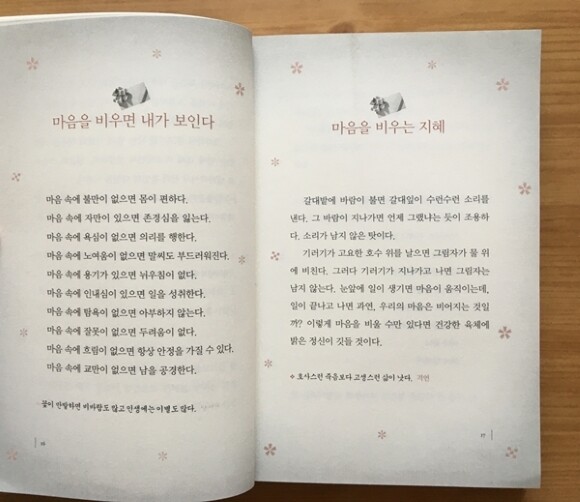 마음을 비우면 내가 보인다
마음 속에 불만이 없으면 몸이 편하다.
마음 속에 자만이 있으면 존경심을 잃는다.
마음 속에 욕심이 없으면 의리를 행한다.
마음 속에 노여움이 없으면 말씨도 부드러워진다.
마음 속에 용기가 있으면 뉘우침이 없다.
마음 속에 인내심이 있으면 일을 성취한다.
마음 속에 탐욕이 없으면 아부하지 않는다.
마음 속에 잘못이 없으면 두려움이 없다.
마음 속에 흐림이 없으면 항상 안정을 가질 수 있다.
마음 속에 교만이 없으면 남을 공경한다.
꽃이 만발하면 비바람도 많고 인생에는 이별도 많다.
마음을 비우는 지혜
갈대밭에 바람이 불면 갈대잎이 수런수런 소리를
낸다. 그 바람이 지나가면 언제 그랬냐는 듯이 조용하
다. 소리가 남지 않은 탓이다.
기러기가 고요한 호수 위를 날으면 그림자가 물 위
에 비친다. 그러다 기러기가 지나가고 나면 그림자는
남지 않는다. 눈앞에 일이 생기면 마음이 움직이는데,
일이 끝나고 나면 과연, 우리의 마음은 비어지는 것일
까? 이렇게 마음을 비울 수만 있다면 건강한 육체에
밝은 정신이 깃들 것이다.
호사스런 죽음보다 고생스런 삶이 낫다. 격언